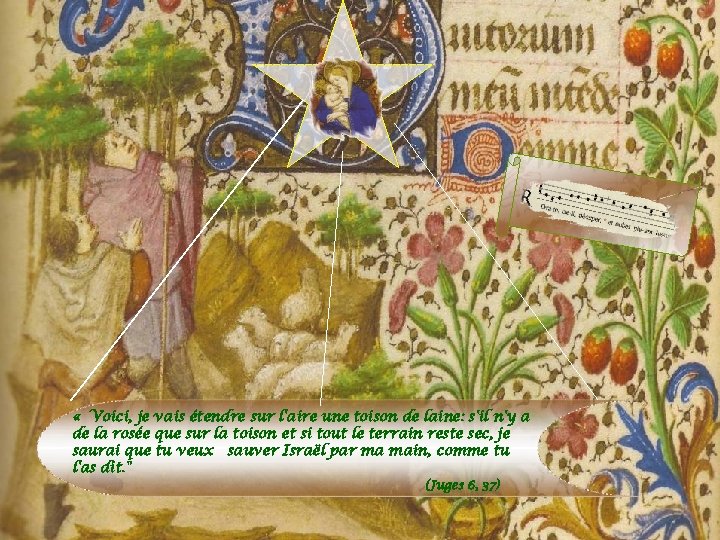 uitorium
meū intēde
Domine
R
« Voici, je vais étendre sur l'aire une toison de laine: s'il n'y a
de la rosée que sur la toison et si tout le terrain reste sec, je
saurai que tu veux sauver Israël par ma main, comme tu
l'as dit."
(Juges 6, 37)